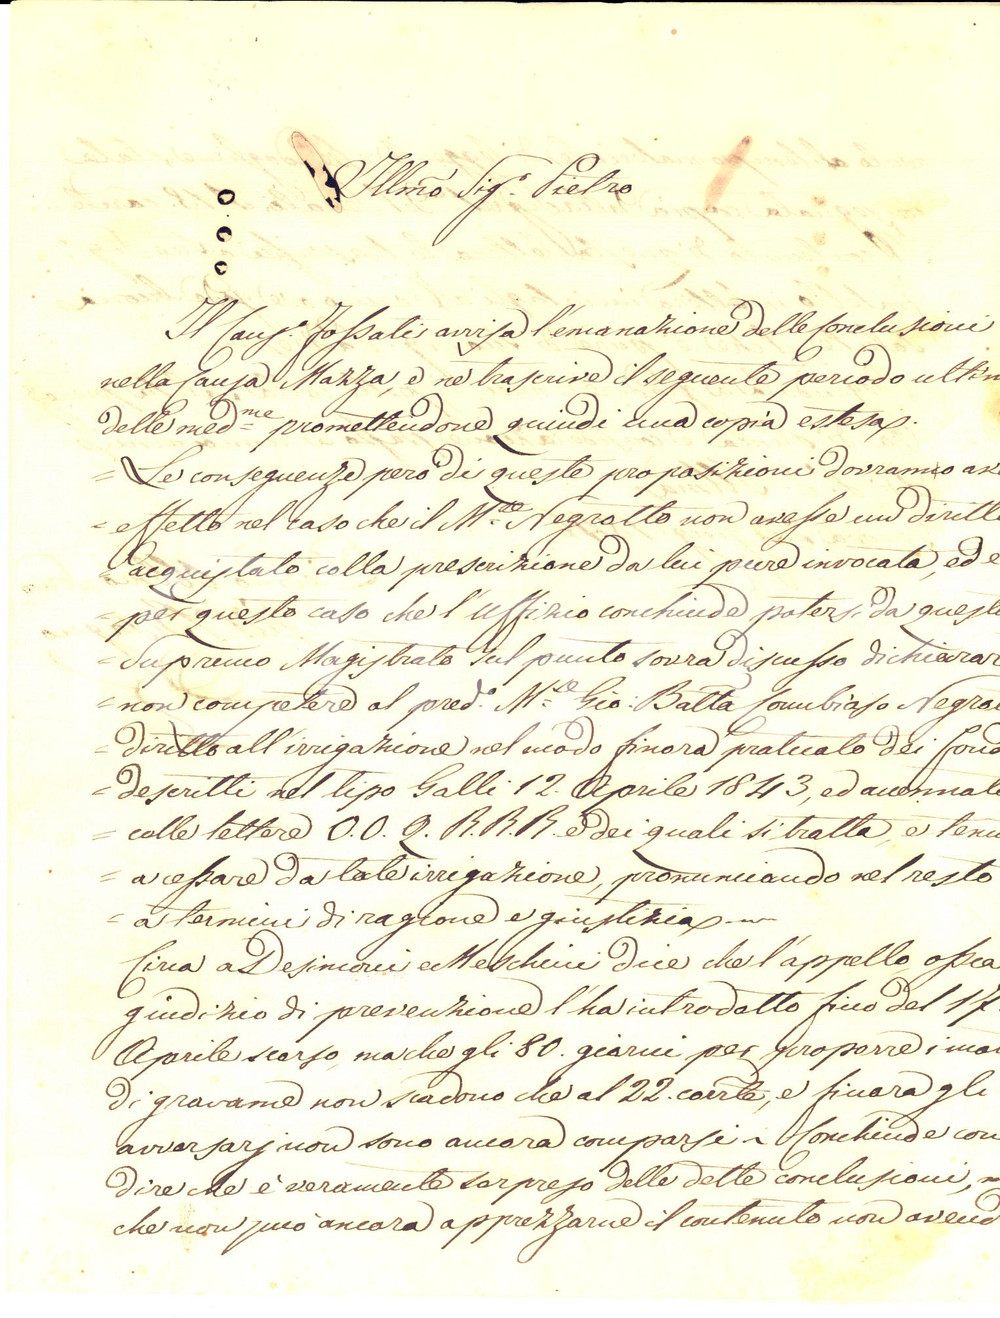 Illmo Sig.r Pietro
Il Caus.o Fossati avvisa l'emanazione delle Conclusioni
nella Causa Mazza, e ne trascrive il seguente periodo ultim
delle med.me promettendone quindi una copia estesa.
= Le conseguenze però di queste proposizioni dovranno ave
= effetto nel caso che il M.se Negrotto non avesse un diritto
= acquistato colla prescrizione da lui pure invocata, ed è
= per questo caso che l'Uffizio conchiude potersi da questo
= Supremo Magistrato sul punto sovra discusso dichiarar
= non competere al pred.o M.se Gio. Batta Cambiaso Negro
= diritto all'irrigazione nel modo finora praticato dei fond
= descritti nel tipo Galli 12. Aprile 1843, ed accennati
= colle lettere O. O. Q. R. R. R. e dei quali si tratta, e tenu
= a cessare da tale irrigazione, pronunciando nel resto
= a termini di ragione e giustizia
Circa a Desimoni e Meschini dice che l'appello, ossia
giudizio di prevenzione l'ha introdotto fino del 17.
Aprile scorso, ma che gli 80. giorni per proporre i mo
di gravame non scadono che al 22. corr.te, e finora gli
avversarj non sono ancora comparsi ~ Conchiude con
dire che è veramente sorpreso delle dette conclusioni,
che non può ancora apprezzarne il contenuto non avend